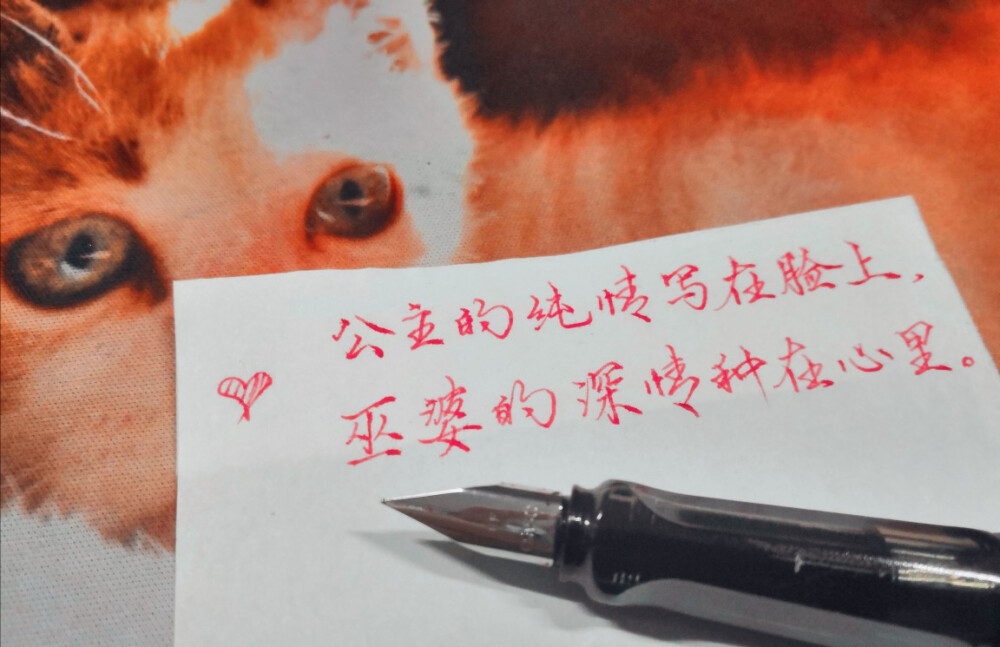 公主的纯情写在脸上，
巫婆的深情种在心里。